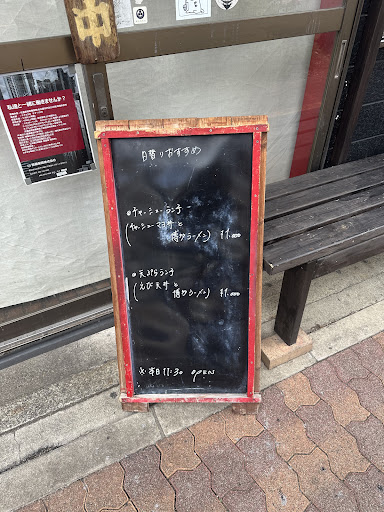 中
私達と一緒に働きませんか？
日替りおすすめ
●チャーシューランチ
(チャーシューマヨ丼と
博多ラーメン) ¥1.000
●天ぷらランチ
(えび天丼と
博多ラーメン) ¥1.000
※本日11:30 OPEN